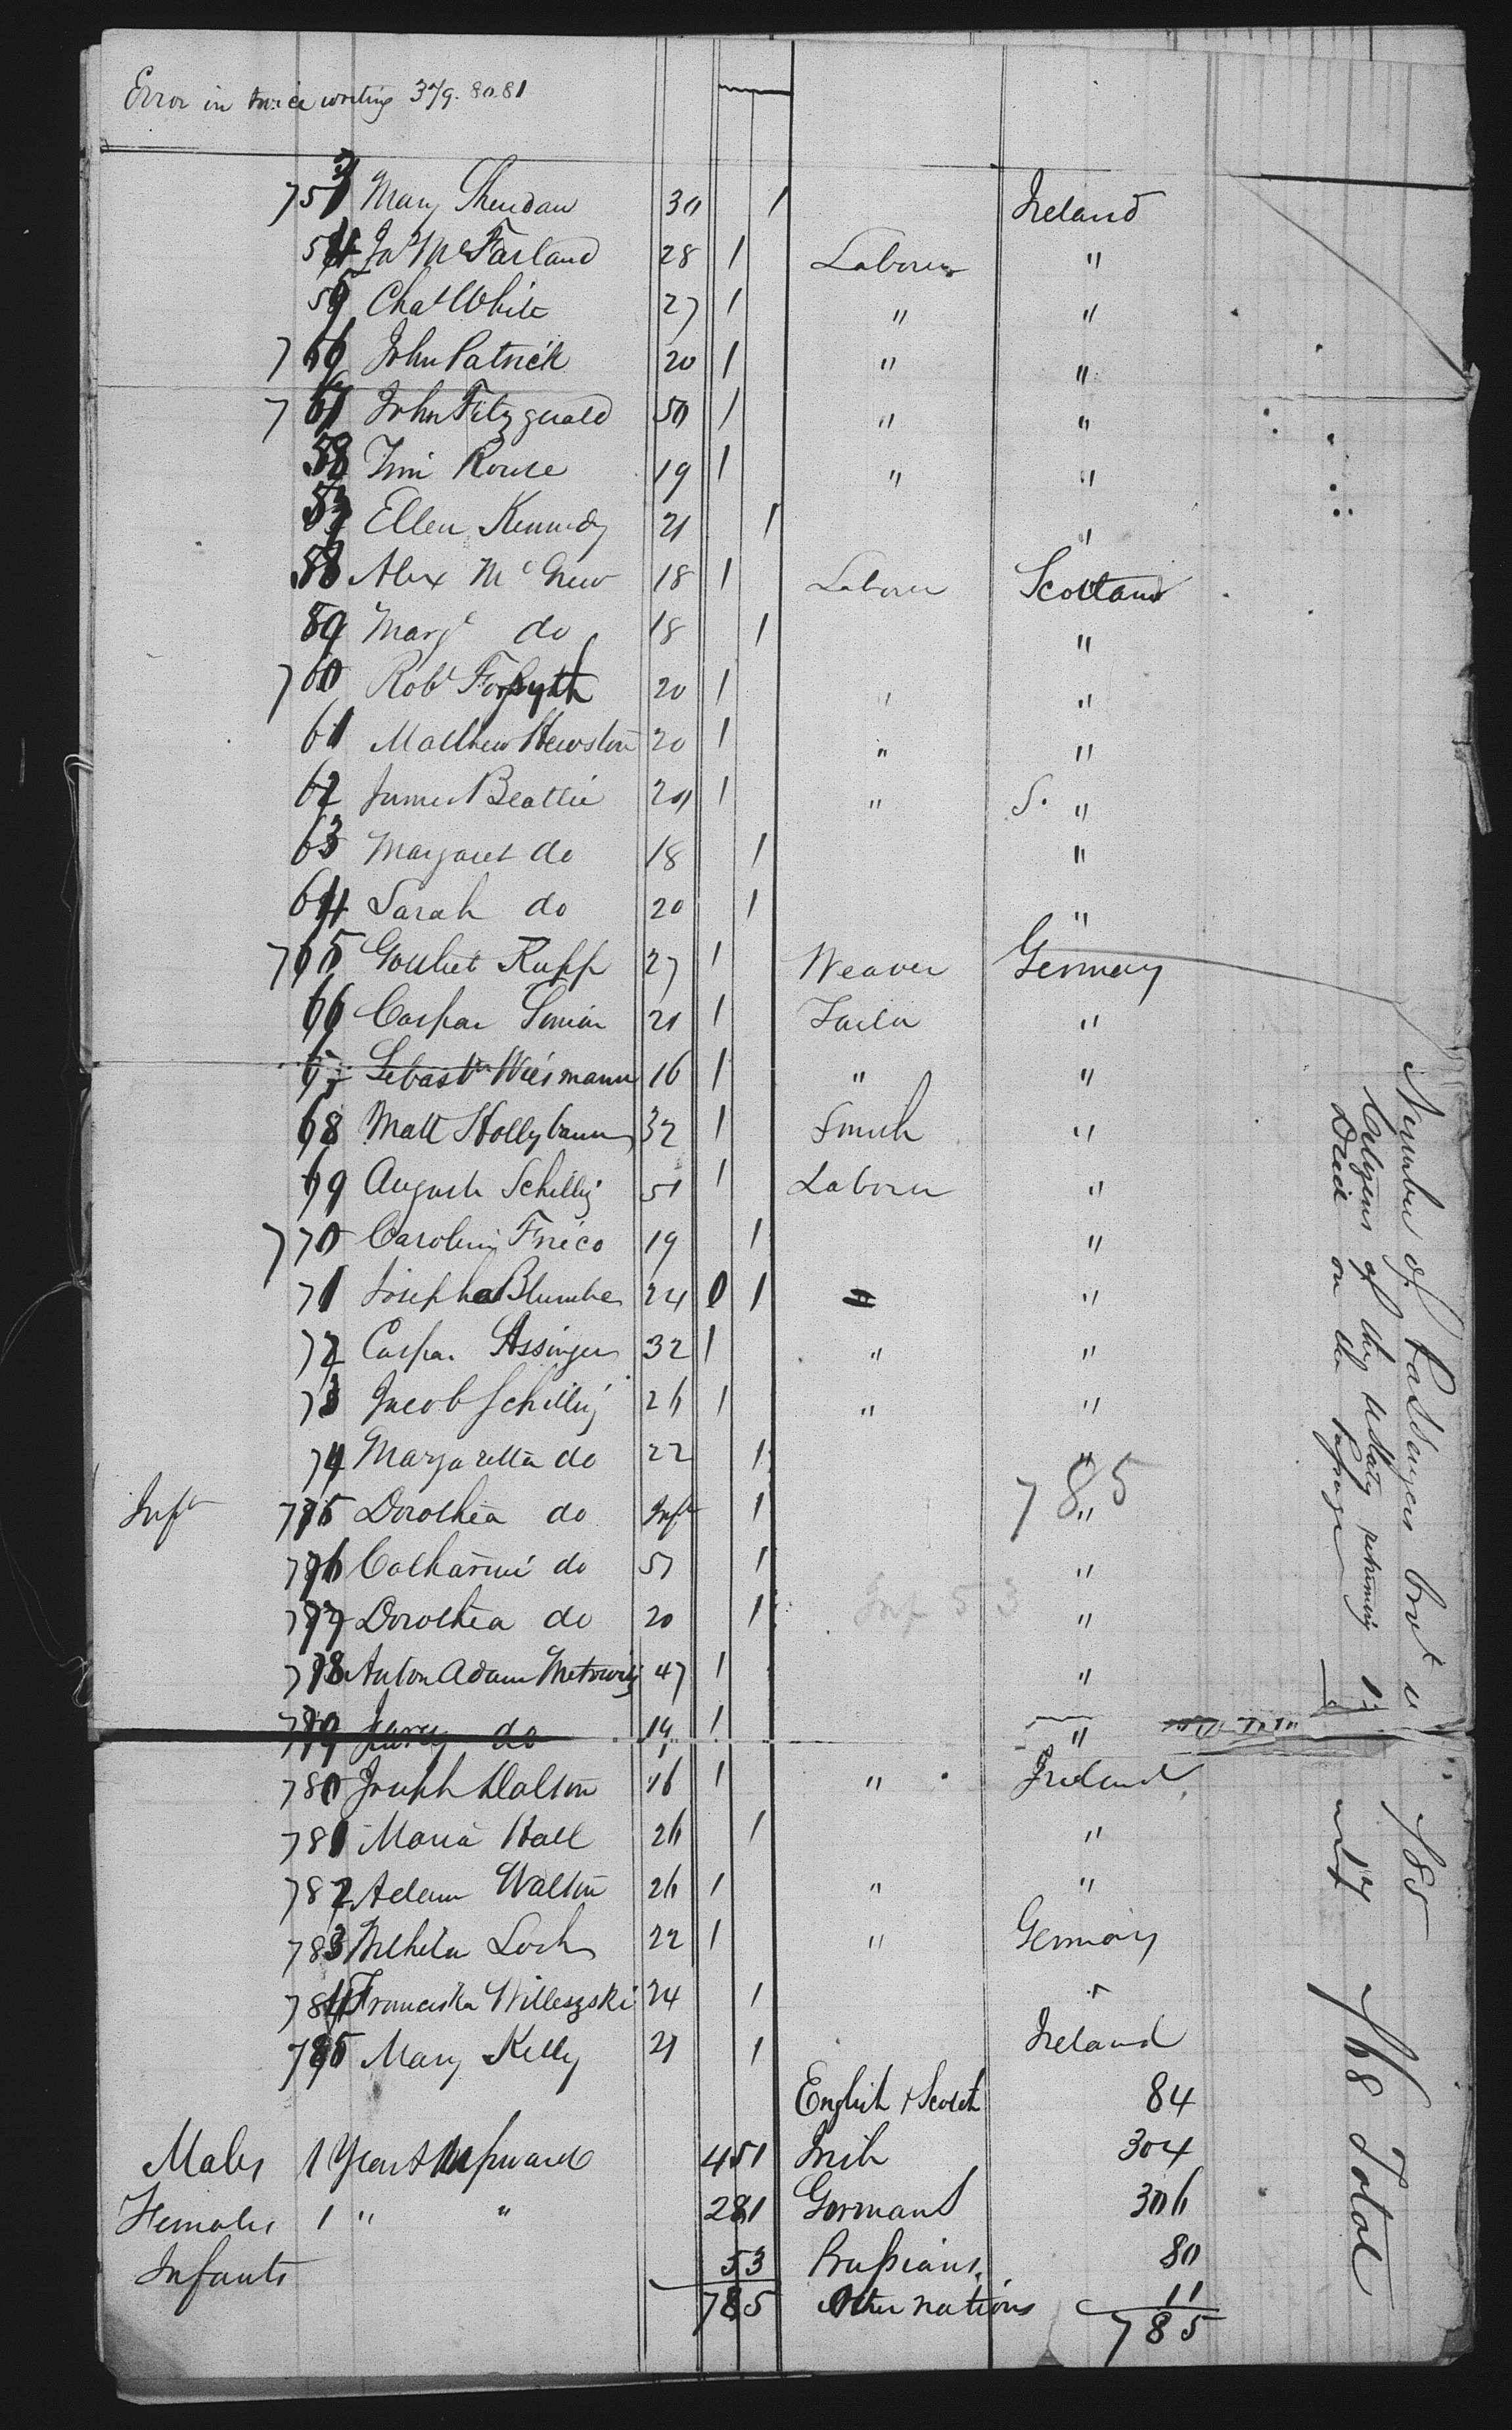 Error in twice writing 379. 80. 81
753 Mary Sheridan 30 1 Ireland
54 Jas McFarland 28 1 Laborer "
55 Chas White 27 1 " "
756 John Patrick 20 1 " "
7 John Fitzgerald 50 1 " "
58 Tim Rouse 19 1 " "
Ellen Kennedy 21 1 "
58 Alex McGrew 18 1 Laborer Scotland
59 Margt do 18 1 "
760 Robt Forsyth 20 1 " "
61 Matthew Hewston 20 1 " "
62 James Beattie 20 1 " S. "
63 Margaret do 18 1 "
64 Sarah do 20 1 "
765 Gottlieb Rupp 27 1 Weaver Germany
66 Caspar Simon 21 1 Tailor "
67 Sebastn Wiesmann 16 1 " "
68 Matt Hollybaum 32 1 Smith "
69 August Schillig 51 1 Laborer "
770 Carolin Frieco 19 1 "
71 Josepha Blumbe 24 0 1 "
72 Caspar Assinger 32 1 " "
73 Jacob Schillig 26 1 " "
74 Margaretta do 22 1 "
785
Inft 775 Dorothea do Inft 1 "
776 Catharine do 57 1 "
Inf 53
777 Dorothea do 20 1 "
778 Anton Adam 47 1 "
779 do 19 1 "
780 Joseph Dalton 16 1 " Ireland
781 Maria Hall 26 1 "
782 Adam Walton 26 1 " "
783 Wilhelm Loch 22 1 " Germany
784 Franciska Willeszski 24 1 "
785 Mary Kelly 21 1 Ireland
English & Scotch 84
Males 1 Year & Upward 451 Irish 304
Females 1 " " 281 Germans 306
Infants 53 Prussians 80
785 Other nations 11
785
Number of Passengers 785
Citizens of the U States returning 17
Died on the Passage
768 Total